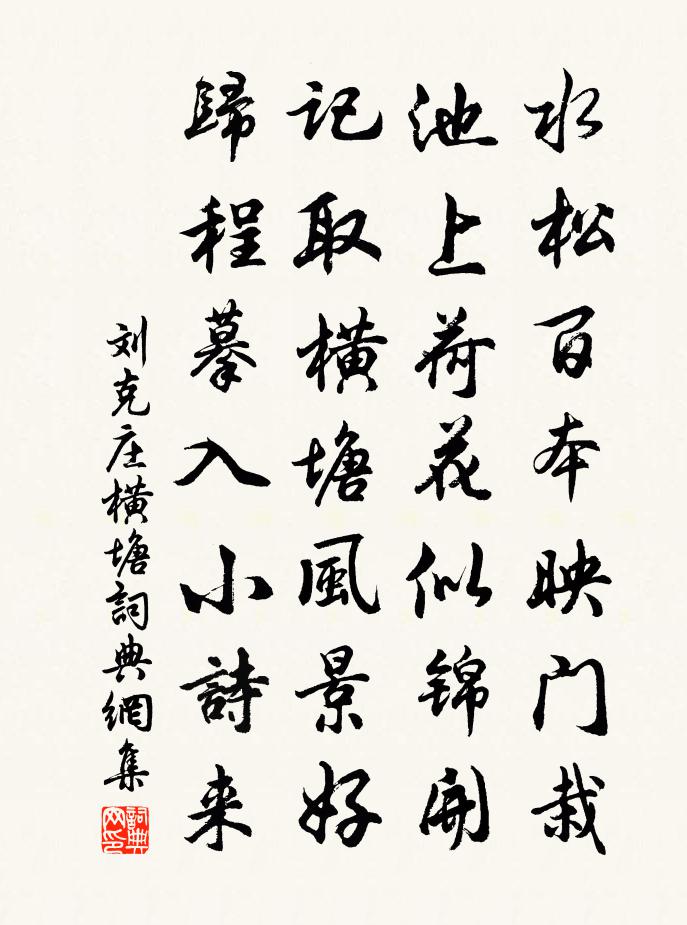 水松百本映门栽
池上荷花似锦開
记取橫塘風景好
歸程摹入小詩来
刘克庄橫塘詞典網集
詞典网印